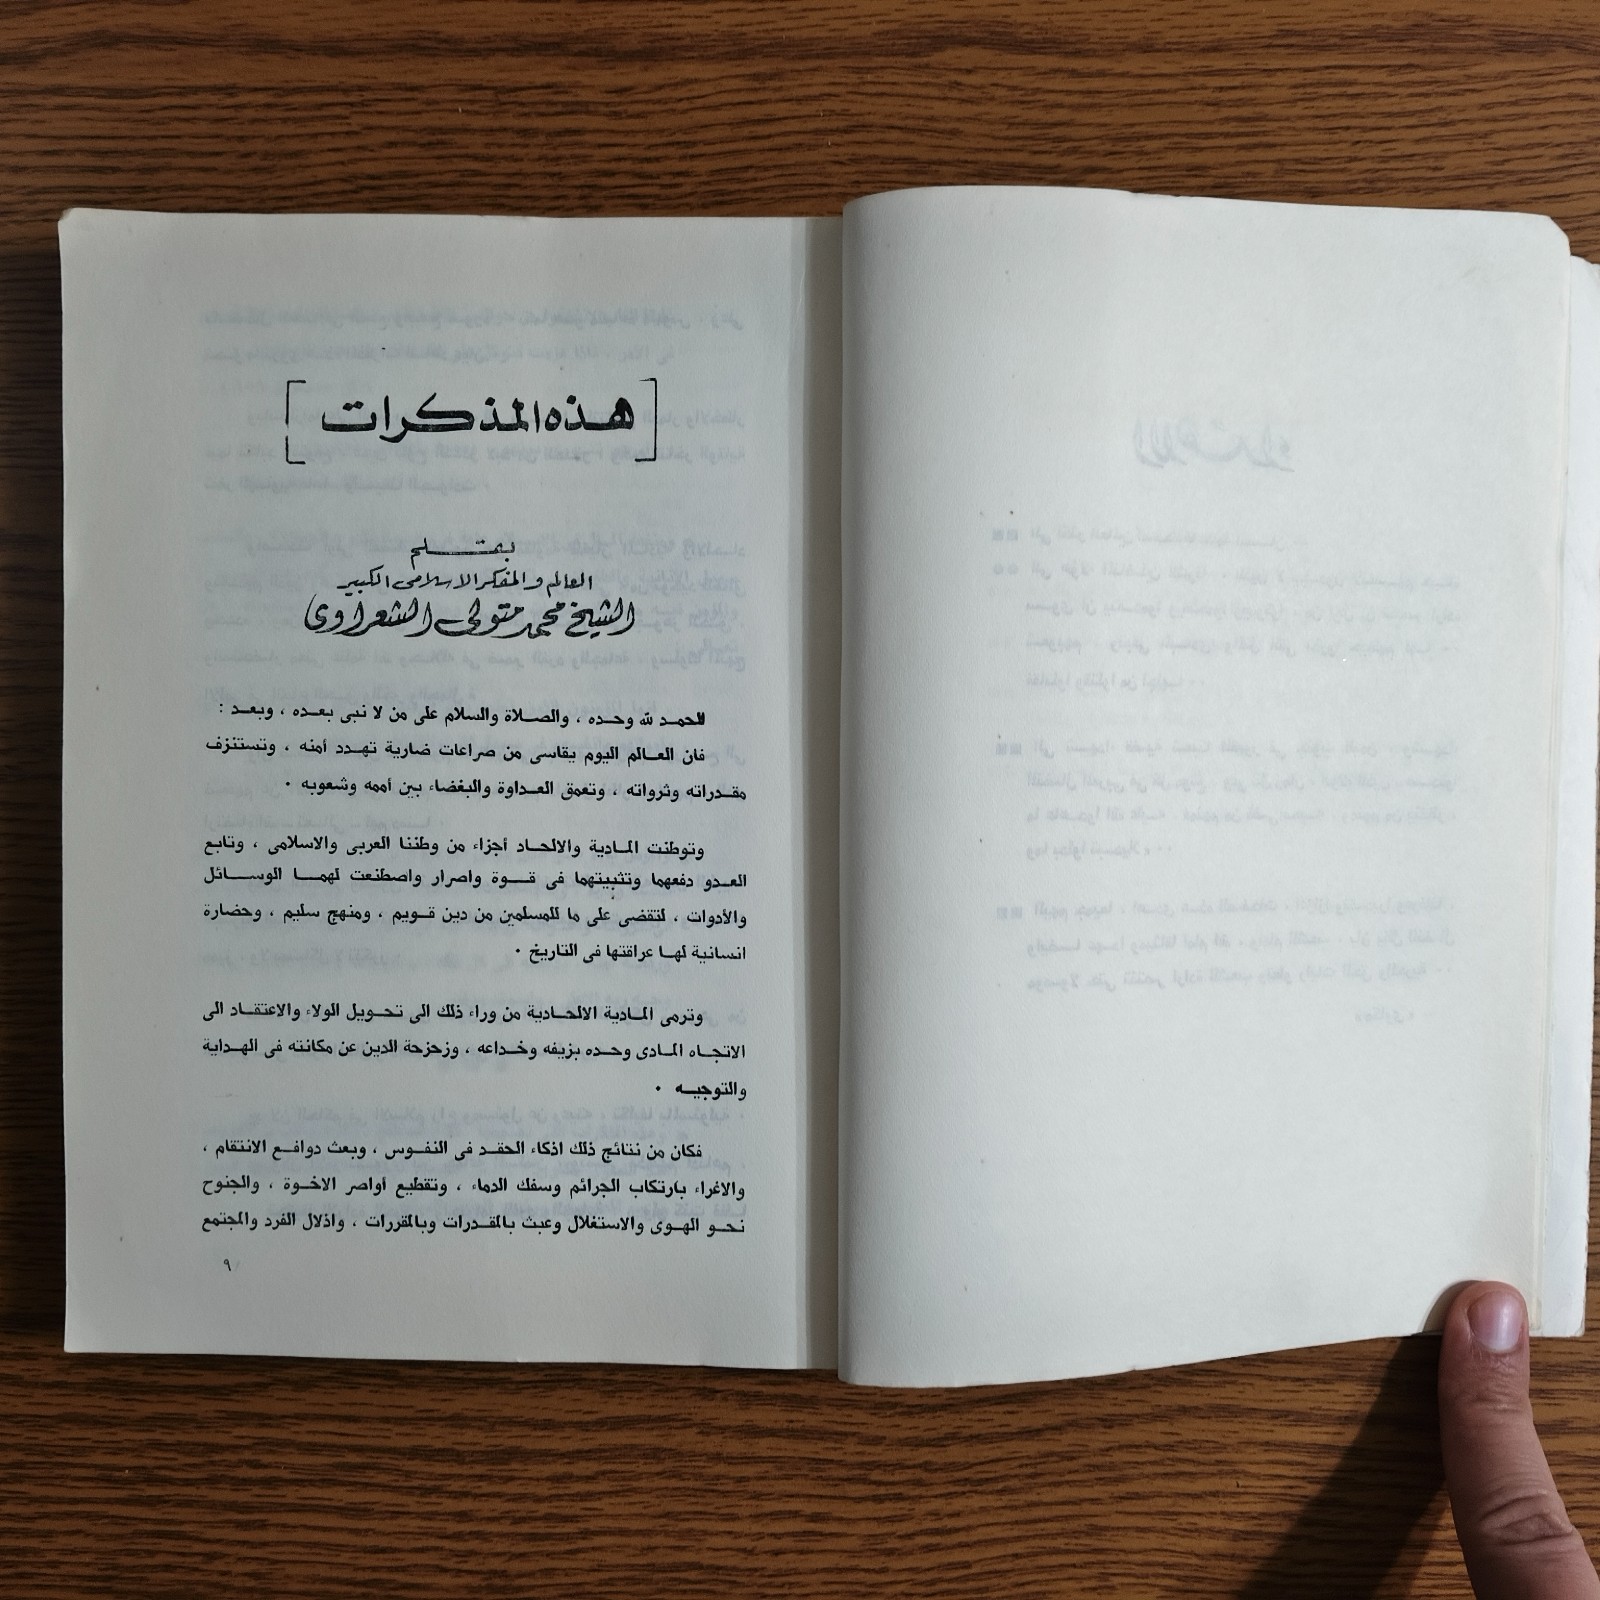 [ هذه المذكرات ]
بقلم
العالم والمفكر الاسلامى الكبير
الشيخ محمد متولى الشعراوى
الحمد لله وحده ، والصلاة والسلام على من لا نبى بعده ، وبعد :
فان العالم اليوم يقاسى من صراعات ضارية تهدد أمنه ، وتستنزف
مقدراته وثرواته ، وتعمق العداوة والبغضاء بين أممه وشعوبه ٠
وتوطنت المادية والالحاد أجزاء من وطننا العربى والاسلامى ، وتابع
العدو دفعهما وتثبيتهما فى قوة واصرار واصطنعت لهما الوسائل
والأدوات ، لتقضى على ما للمسلمين من دين قويم ، ومنهج سليم ، وحضارة
انسانية لها عراقتها فى التاريخ ٠
وترمى المادية الالحادية من وراء ذلك الى تحويل الولاء والاعتقاد الى
الاتجاه المادى وحده بزيفه وخداعه ، وزحزحة الدين عن مكانته فى الهداية
والتوجيه ٠
فكان من نتائج ذلك اذكاء الحقد فى النفوس ، وبعث دوافع الانتقام ،
والاغراء بارتكاب الجرائم وسفك الدماء ، وتقطيع أواصر الاخوة ، والجنوح
نحو الهوى والاستغلال وعبث بالمقدرات وبالمقررات ، واذلال الفرد والمجتمع
٩